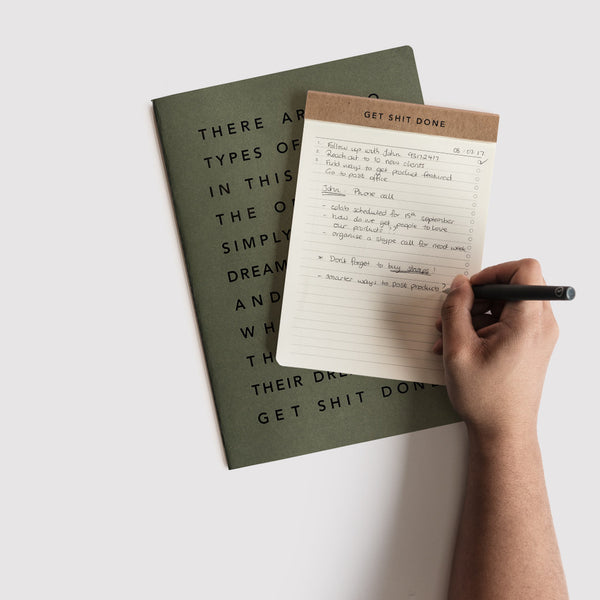 THERE AR
TYPES OF
IN THIS
THE O
SIMPLY
DREAM
AND
WH
TH
THEIR DRE
GET SHIT DONE
GET SHIT DONE
08.07.17
1. Follow up with John
2. Reach out to 10 new clients
3. Find ways to get product featured
Go to post office
John Phone call
- collab scheduled for 15th september
- how do we get people to love
our products
- organise a skype call for next week
* Don't forget to buy stamps!
- smarter ways to post products?